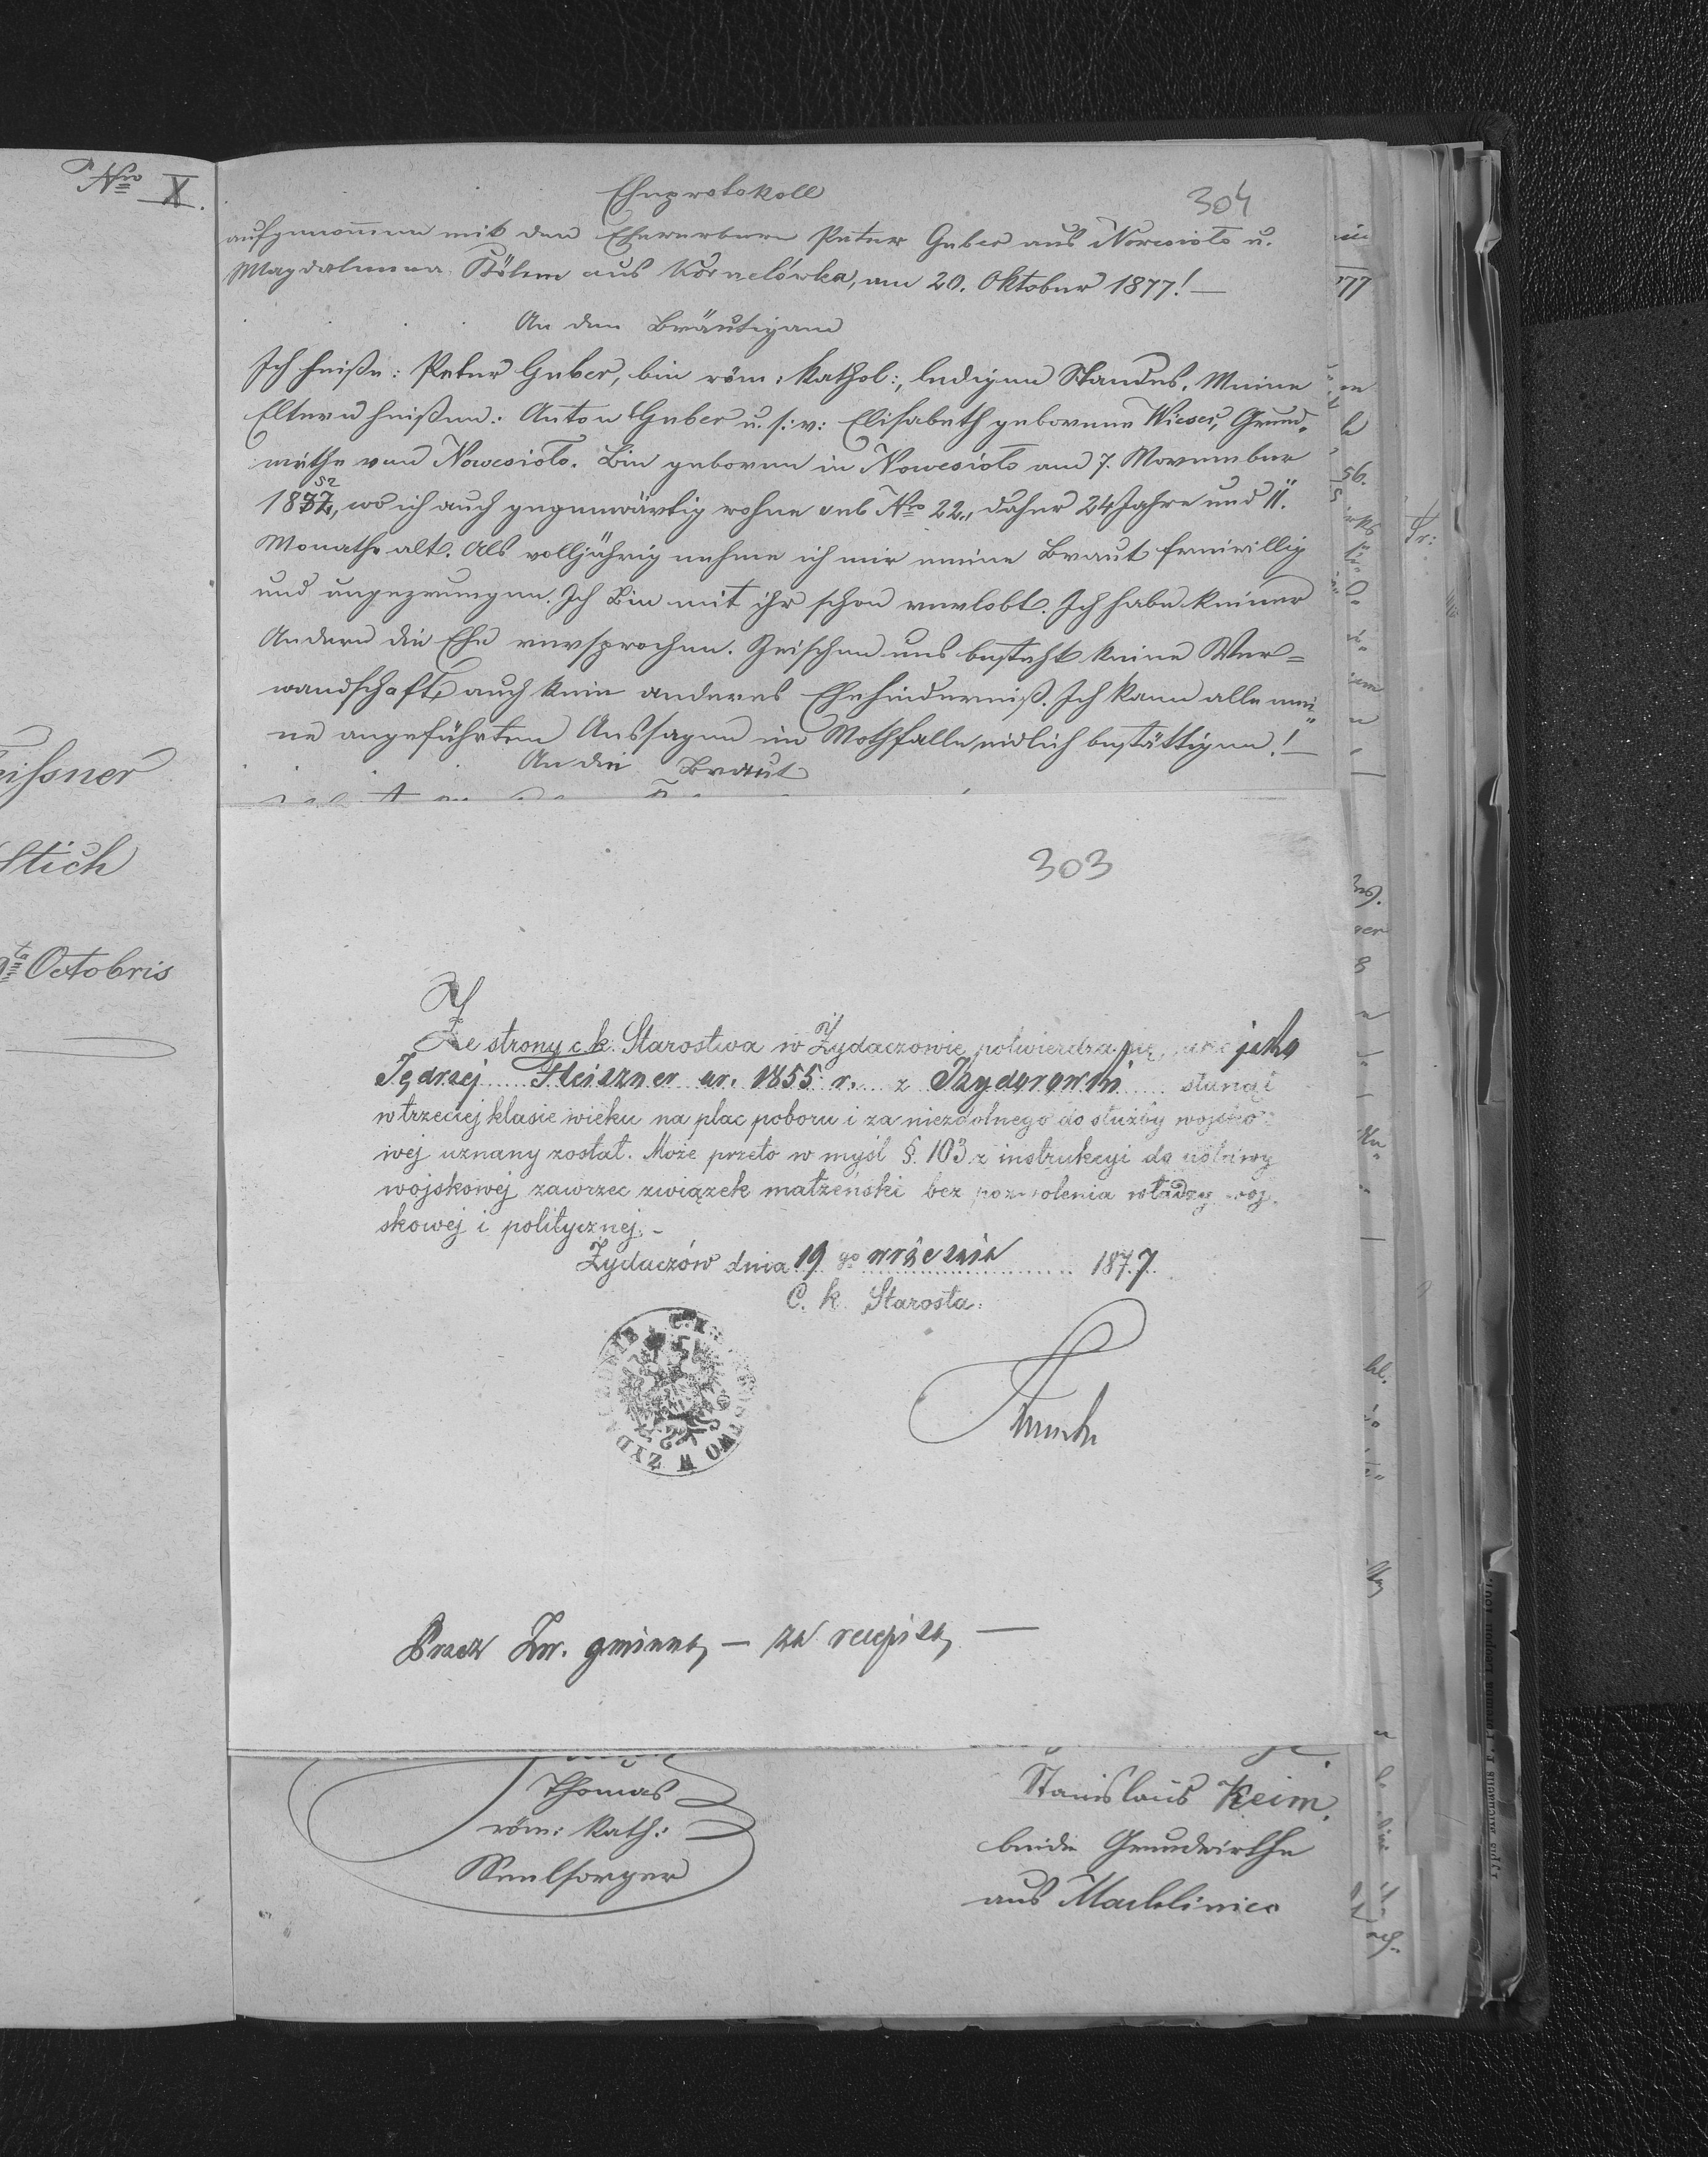 Nro X.
eissner
Stich
Octobris
Eheprotokoll
304
aufgenommen mit den Ehewerbern Peter Guber aus Nowesioło u.
Magdalenna Böhm aus Kornelówka, am 20. Oktober 1877! —
An den Bräutigam
Ich heiße: Peter Guber, bin röm: kathol:, ledigen Standes. Meine
Eltern heißen: Anton Guber u. s: v: Elisabeth geborene Wieser, Grund„
wirthe von Nowesioło. Bin geboren in Nowesioło am 7. November
52
1837, wo ich auch gegenwärtig wohne sub Nro 22., daher 24 Jahre und 11.
Monathe alt. Als volljährig nehme ich mir meine Braut freiwillig
und ungezwungen. Ich bin mit ihr schon verlobt. Ich habe keiner
Andern die Ehe versprochen. Zwischen uns besteht keine Ver=
wandschaft, auch kein anderes Ehehinderniß. Ich kann alle mei„
ne angeführten Aussagen im Nothfalle eidlich bestättigen! —
An die Braut
303
Ze strony c. k. Starostwa w Żydaczowie potwierdza się, jako
Jędrzej Fleiszner ur. 1855 r. z Izydorówki stanął
w trzeciej klasie wieku na plac poboru i za niezdolnego do służby wojsko-
wej uznany został. Może przeto w myśl §. 103 z instrukcyi do ustawy
wojskowej zawrzec związek małżeński bez pozwolenia władzy woj-
skowej i politycznej. —
Żydaczów dnia 19 go września 1877
C. k. Starosta:
Przez Zw. gminną — za recepisą —
Thomas
röm: kath:
Seelsorger
Stanislaus Keim.
beide Grundwirthe
aus Machliniec